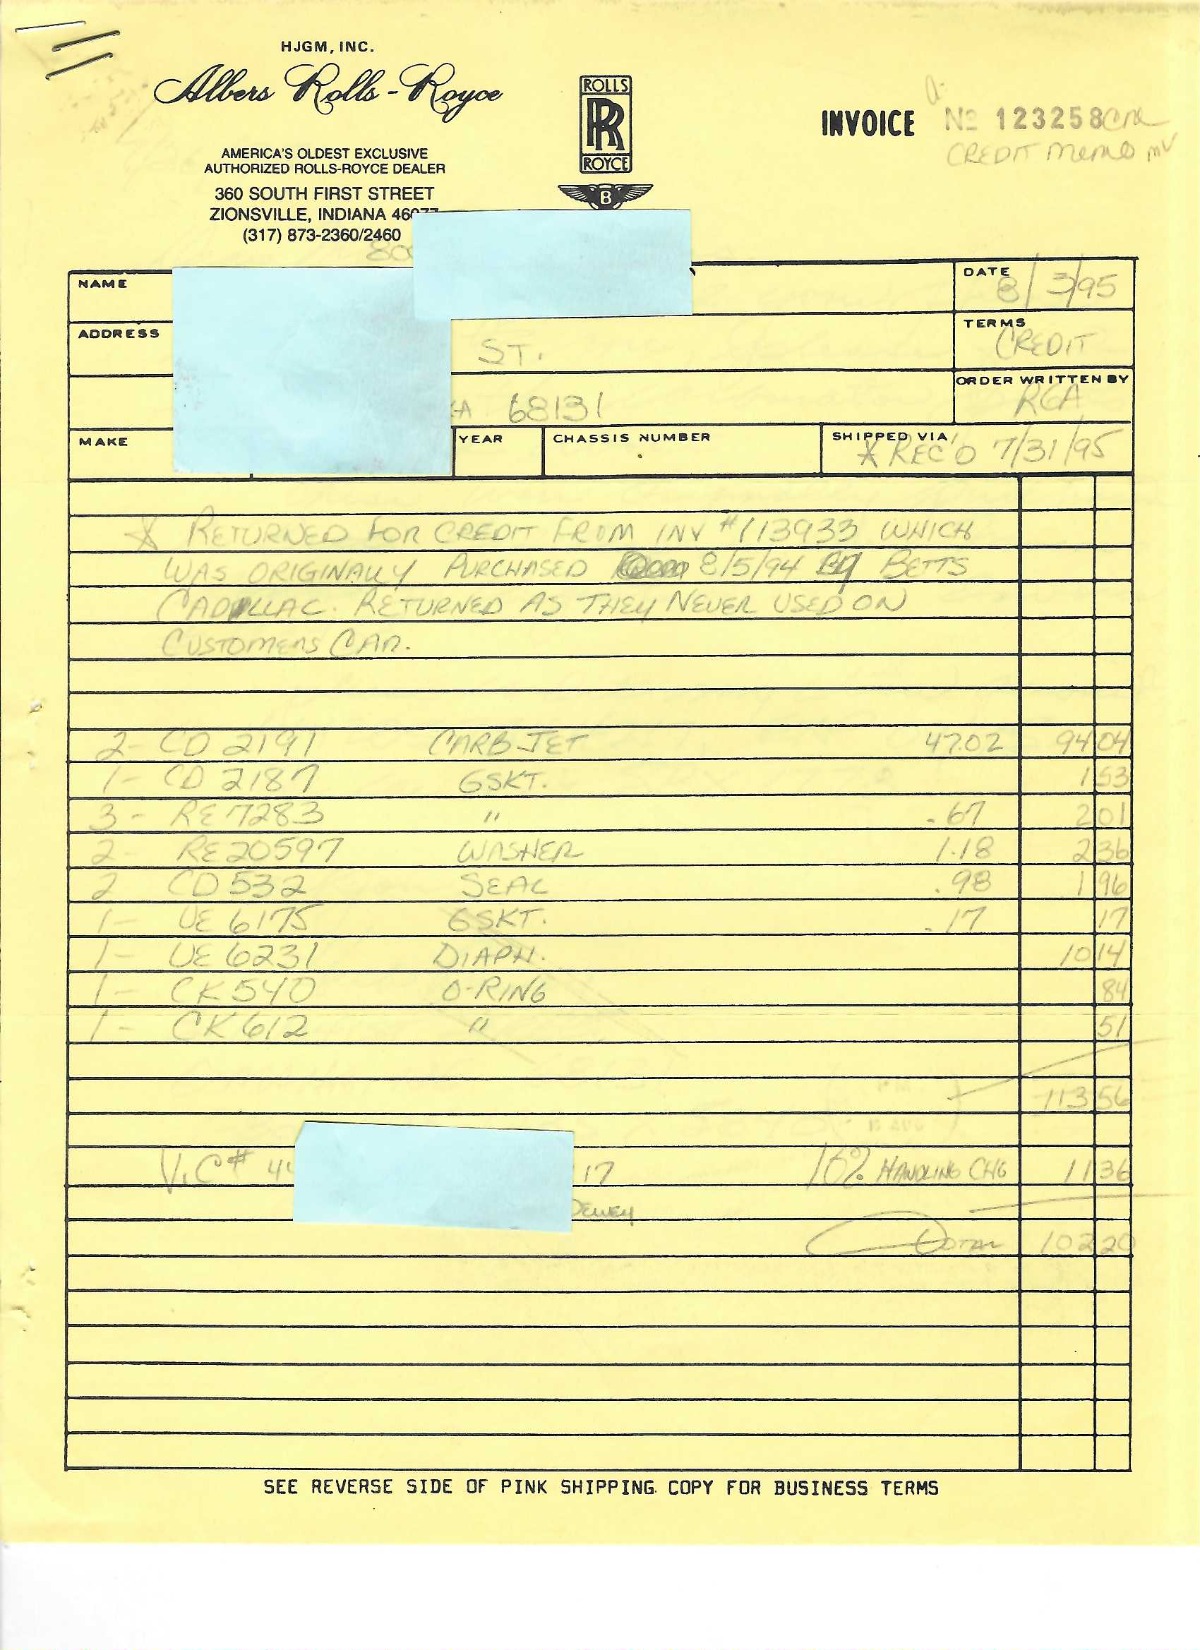 HJGM, INC.
Albers Rolls-Royce
ROLLS
RR
ROYCE
B
INVOICE No 123258 CM
CREDIT MEMO MV
AMERICA'S OLDEST EXCLUSIVE
AUTHORIZED ROLLS-ROYCE DEALER
360 SOUTH FIRST STREET
ZIONSVILLE, INDIANA 46077
(317) 873-2360/2460
NAME
DATE 8/3/95
ADDRESS ST.
TERMS CREDIT
68131
ORDER WRITTEN BY RGA
MAKE YEAR CHASSIS NUMBER SHIPPED VIA * REC'D 7/31/95
* RETURNED FOR CREDIT FROM INV #113933 WHICH
WAS ORIGINALLY PURCHASED 8/5/94 BY BETTS
CADILLAC. RETURNED AS THEY NEVER USED ON
CUSTOMERS CAR.
2- CD 2191 CARB JET 47.02 94 04
1- CD 2187 GSKT. 1 53
3- RE 7283 " .67 2 01
2- RE 20597 WASHER 1.18 2 36
2 CD 532 SEAL .98 1 96
1- UE 6175 GSKT. .17 17
1- UE 6231 DIAPH. 10 14
1- CK 540 O-RING 84
1- CK 612 " 51
113 56
10% HANDLING CHG 11 36
TOTAL 102 20
SEE REVERSE SIDE OF PINK SHIPPING COPY FOR BUSINESS TERMS